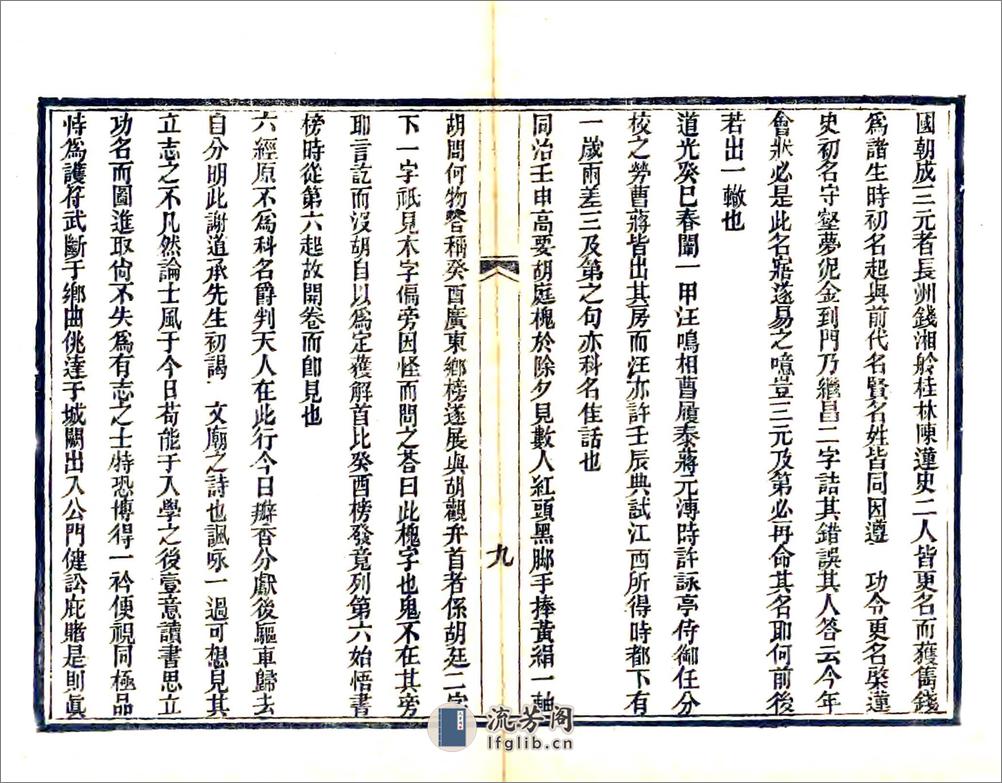 國朝成三元者長洲錢湘舲桂林陳蓮史二人皆更名而獲雋錢
爲諸生時初名起與前代名賢名姓皆同因遵 功令更名棨蓮
史初名守壑夢泥金到門乃繼昌二字詰其錯誤其人答云今年
會狀必是此名寤遂易之噫豈三元及第必再命其名耶何前後
若出一轍也
道光癸巳春闈一甲汪鳴相曹履泰蔣元溥時許詠亭侍御任分
校之勞曹蔣皆出其房而汪亦許壬辰典試江西所得時都下有
一歲兩差三及第之句亦科名佳話也
同治壬申高要胡庭槐於除夕見數人紅頭黑脚手捧黃絹一軸
九
胡問何物答稱癸酉廣東鄉榜遂展與胡觀弁首者係胡廷二字
下一字祇見木字偏旁因怪而問之荅曰此槐字也鬼不在其旁
耶言訖而沒胡自以爲定獲解首比癸酉榜發竟列第六始悟書
榜時從第六起故開卷而卽見也
六經原不爲科名爵判天人在此行今日瓣香分獻後驅車歸去
自分明此謝道承先生初謁 文廟之詩也諷咏一過可想見其
立志之不凡然論士風于今日苟能于入學之後壹意讀書思立
功名而圖進取尙不失爲有志之士特恐博得一衿便視同極品
恃爲護符武斷于鄉曲佻達于城闕出入公門健訟庇賭是則眞
流芳阁
lfglib.cn